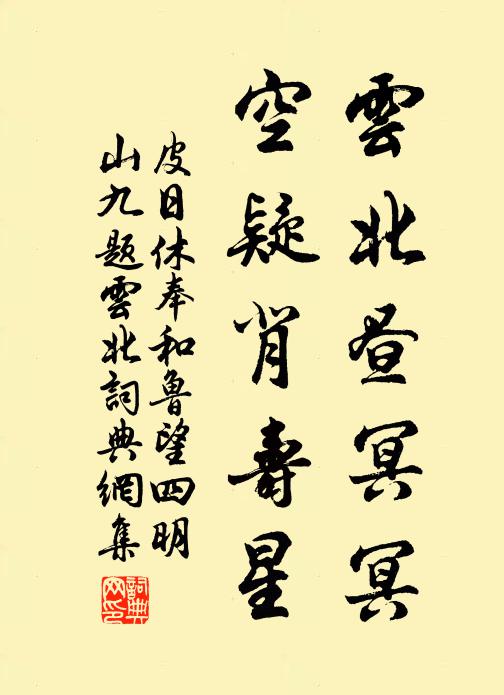 雲北昼冥冥
空疑背壽星
皮日休奉和魯望四明
山九題雲北詞典網集
詞典網印